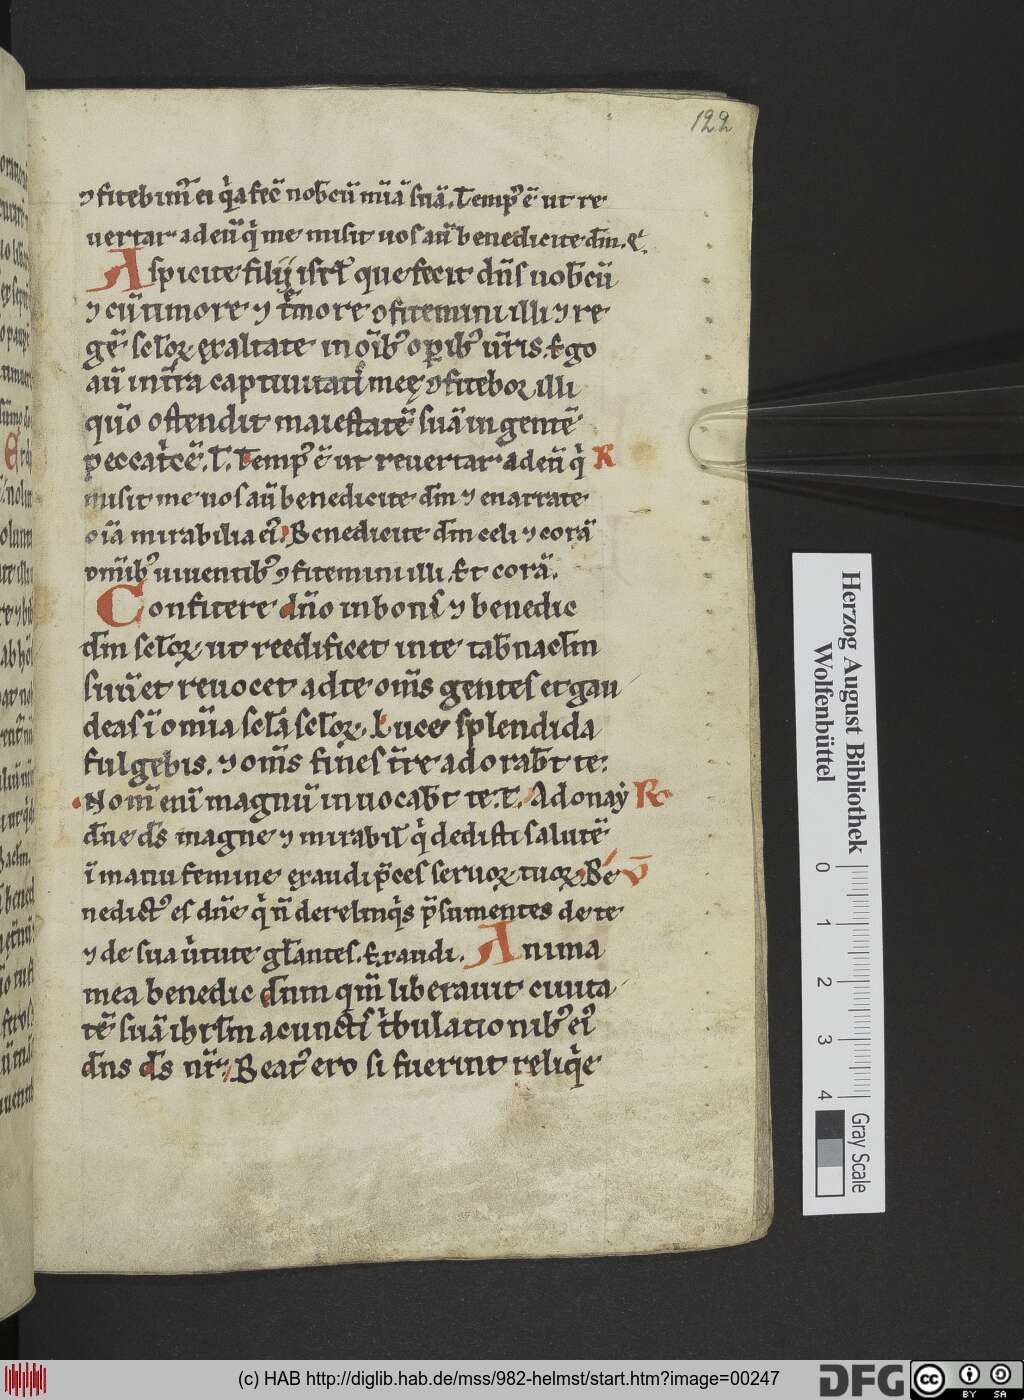 122
ꝯfitebim̄ ei q̇a fec̄ nobcū mīam suā. Temp᷒ ē ut re
uertar ad eū q̇ me misit uos aū benedicite dm̄. ⁊
Aspicite filij isrl̄ que fecit dn̄s uob̄cū
⁊ cū timore ⁊ t̄more ꝯfitemini illi ⁊ re
gē sc̄loꝝ exaltate in oīb᷒ opib᷒ ur̄is. Ego
aū in tr̄a captiuitatis meę ꝯfitebor illi
qm̄o ostendit maiestatē suā in gentē
peccatcē. T. Temp᷒ ē ut reuertar ad eū q̇ R
misit me uos aū benedicite dm̄ ⁊ enarrate
oīa mirabilia ei᷒ Benedicite dm̄ celi ⁊ corā
omīb᷒ uiuentib᷒ ꝯfitemini illi. Et corā.
Confitere dn̄o in bonis ⁊ benedic
dm̄ sc̄loꝝ ut reedificet in te tab̄nacl̄m
suū et reuocet ad te om̄s gentes et gau
deas ī omīa sc̄la sc̄loꝝ. Luce splendida
fulgebis. ⁊ om̄s fines tr̄e adorab̄t te.
Nom̄ enī magnū inuocab̄t te. T. Adonaẏ R
dn̄e ds̄ magne ⁊ mirabil̄ q̇ dedisti salutē
ī manu femine exaudi p̄ces seruoꝝ tuoꝝ. Be V
nedict᷒ es dn̄e q̇ n̄ derelinq̇s p̄sumentes de te
⁊ de sua u̇tute gl̄antes. Exaudi. Anima
mea benedic dn̄m qm̄ liberauit ciuita
tē suā ihrl̄m a cunctis ṫbulationib᷒ ei᷒
dn̄s ds̄ nr̄. Beat᷒ ero si fuerint reliq̇e
Herzog August Bibliothek
Wolfenbüttel
0 1 2 3 4
Gray Scale
(c) HAB http://diglib.hab.de/mss/982-helmst/start.htm?image=00247
DFG
cc BY SA